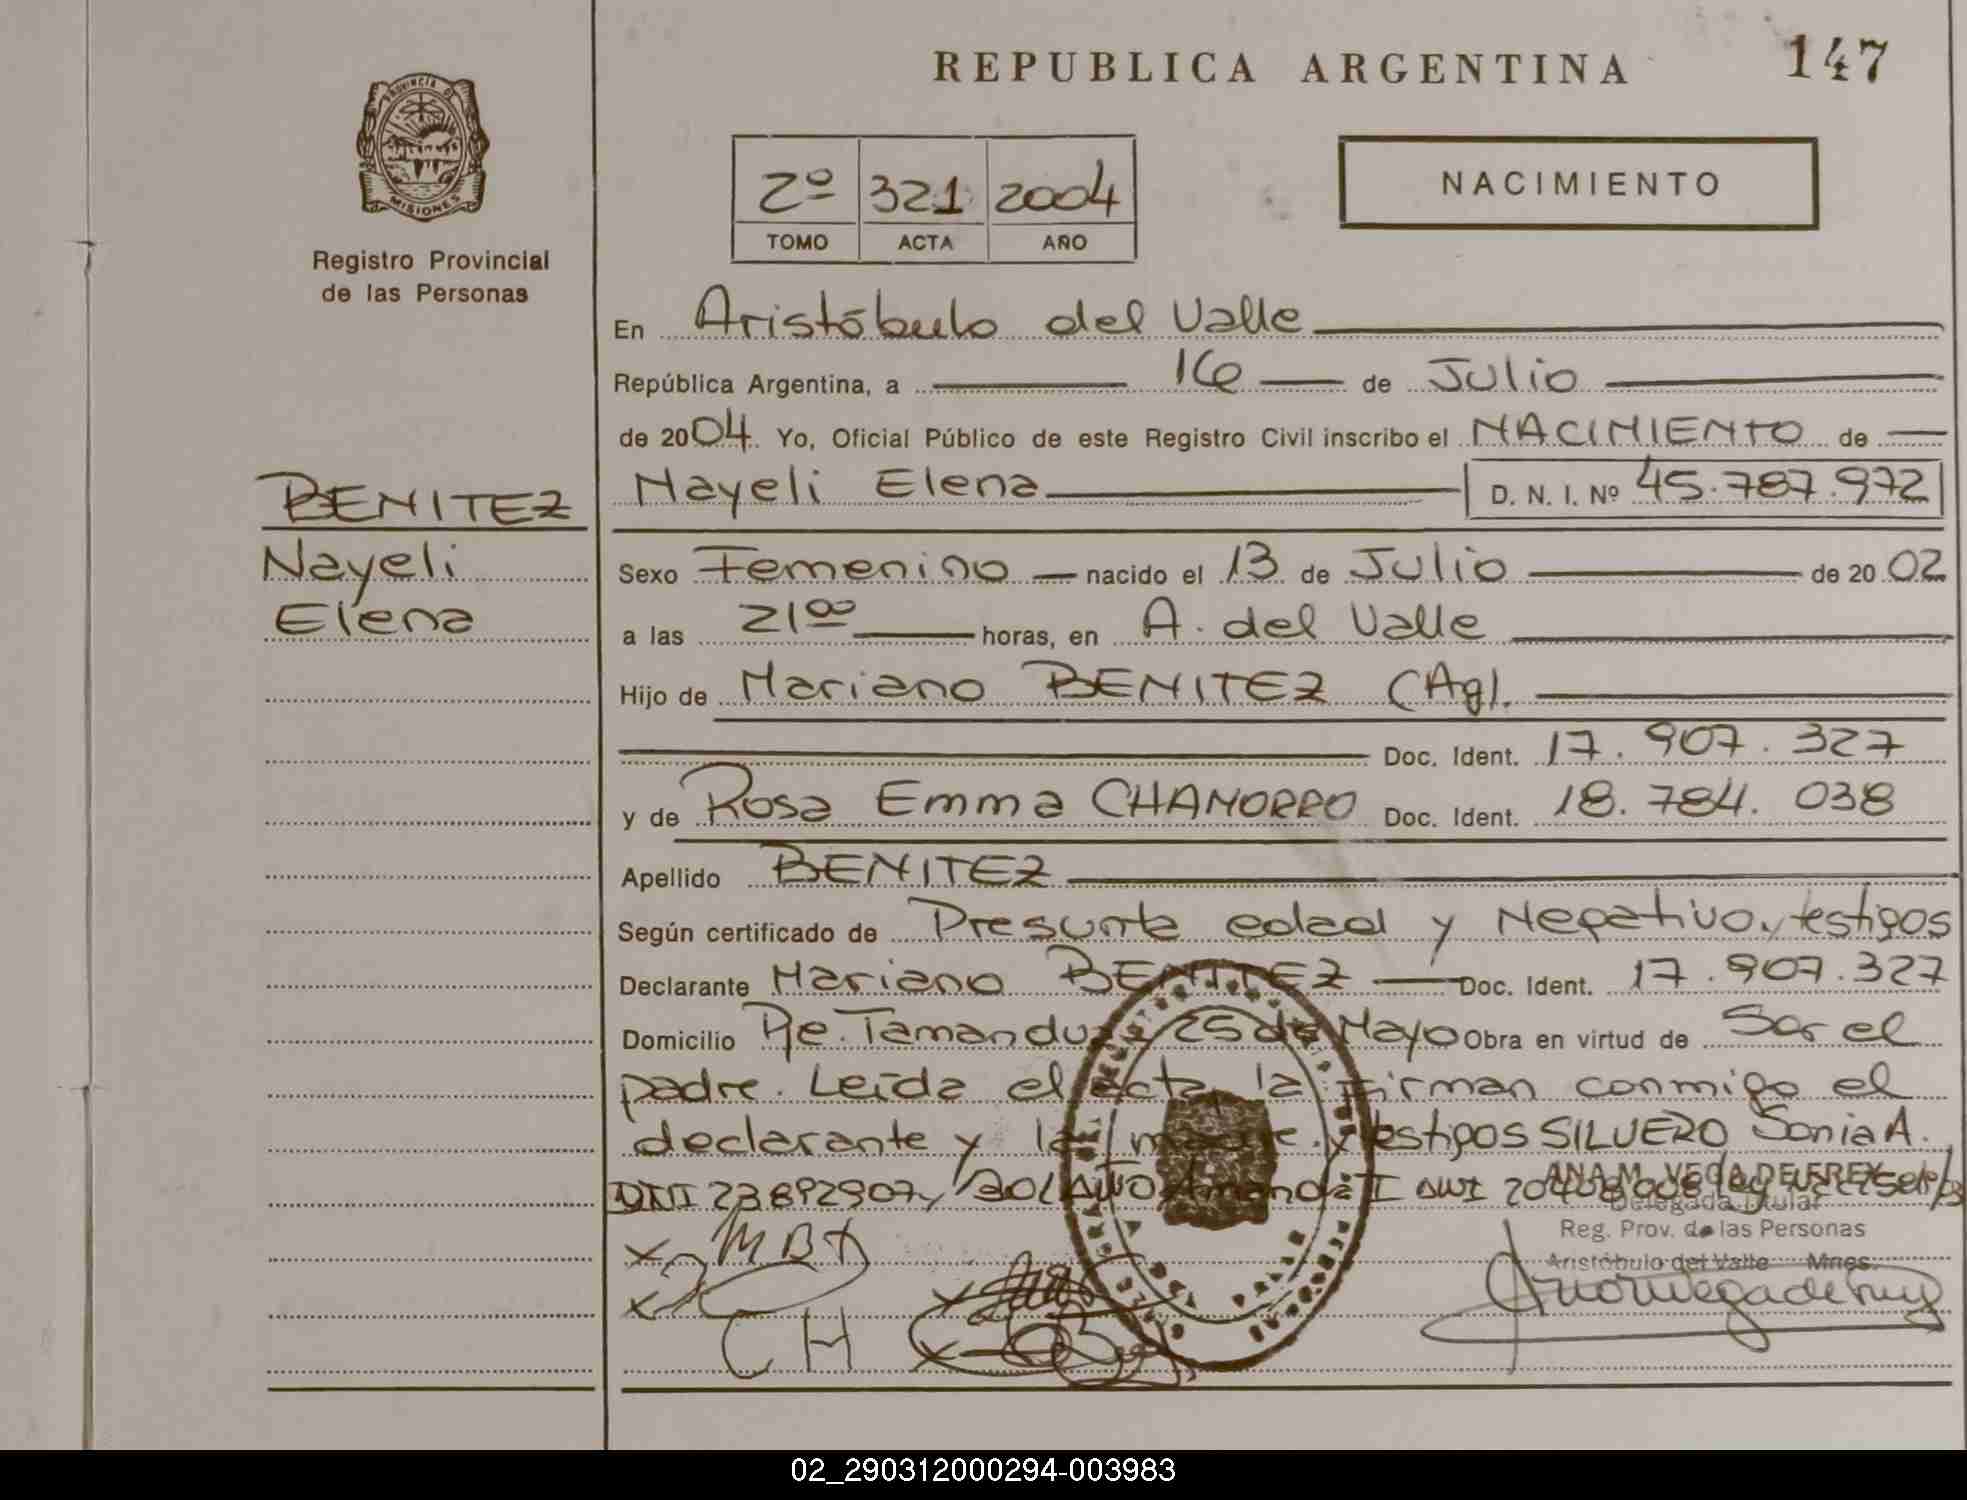 REPUBLICA ARGENTINA
147
PROVINCIA DE
MISIONES
Registro Provincial
de las Personas
2º 321 2004
TOMO ACTA AÑO
NACIMIENTO
En Aristóbulo del Valle
República Argentina, a 16 de Julio
de 2004. Yo, Oficial Público de este Registro Civil inscribo el NACIMIENTO de
Nayeli Elena D. N. I. Nº 45.787.972
BENITEZ
Nayeli
Elena
Sexo Femenino nacido el 13 de Julio de 2002
a las 21⁰⁰ horas, en A. del Valle
Hijo de Mariano BENITEZ (Ag).
Doc. Ident. 17.907.327
y de Rosa Emma CHAMORRO Doc. Ident. 18.784.038
Apellido BENITEZ
Según certificado de Presunta edad y Negativo, testigos
Declarante Mariano BENITEZ Doc. Ident. 17.907.327
Domicilio Pje. Tamandua 25 de Mayo Obra en virtud de Ser el
padre. Leída el acta, la firman conmigo el
declarante y la madre. y testigos SILVERO Sonia A.
DNI 23892907, Amanda I DNI
ANA M. VEGA DE FREY
Delegada Titular
Reg. Prov. de las Personas
Aristóbulo del Valle Mnes.
x MBA
x
CH
02_290312000294-003983